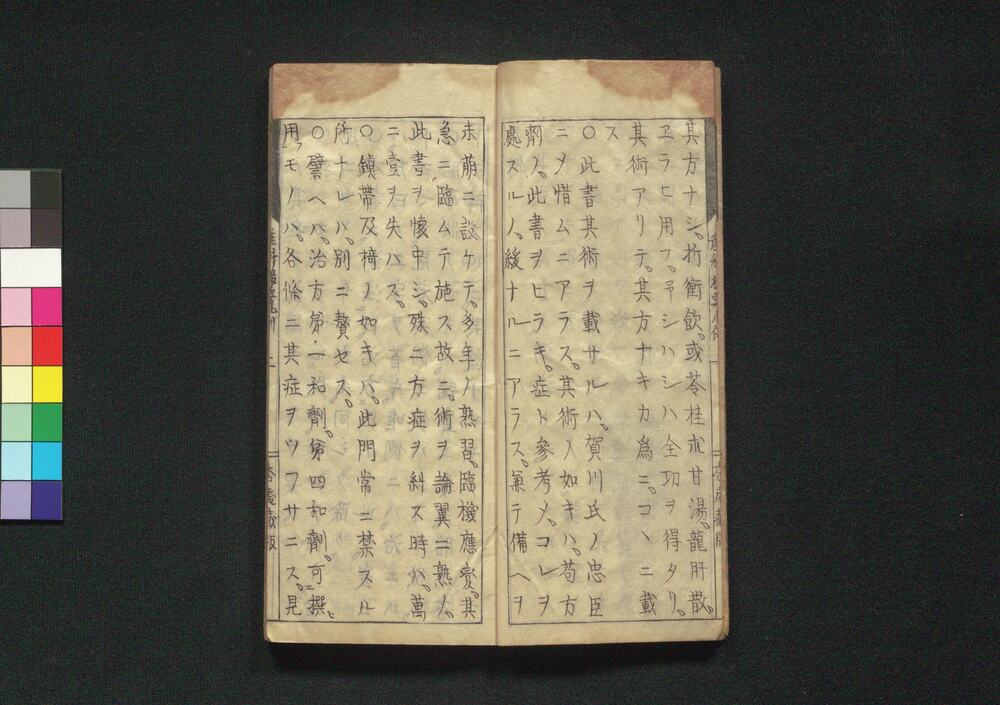 其方ナシ。折衝飲。或苓桂朮甘湯。龍肝散。
ヱラヒ用フ。予シハシハ全功ヲ得タリ。
其術アリテ。其方ナキカ為ニ。コヽニ載
ス
○此書其術ヲ載サルハ。賀川氏ノ忠臣
ニメ惜ムニアラス。其術ノ如キハ。苟方
劑ノ。此書ヲヒラキ。症ト參考メ。コレヲ
處スルノ。緩ナルニアラス。兼テ備ヘヲ
未萠ニ設ケテ。多年ノ熟習。臨機應變。其
急ニ臨ムテ施ス故ニ。術ヲ論翼ニ熟ノ。
此書ヲ懷中シ。殊ニ方症ヲ糾ス時ハ。萬
ニ壹ヲ失ハス。
○鎮帶及椅ノ如キハ。此門常ニ禁スル
所ナレハ。別ニ贅セス。
○譬ヘハ。治方第一和劑。第四和劑。可撰
用モノハ。各條ニ其症ヲツフサニス。見